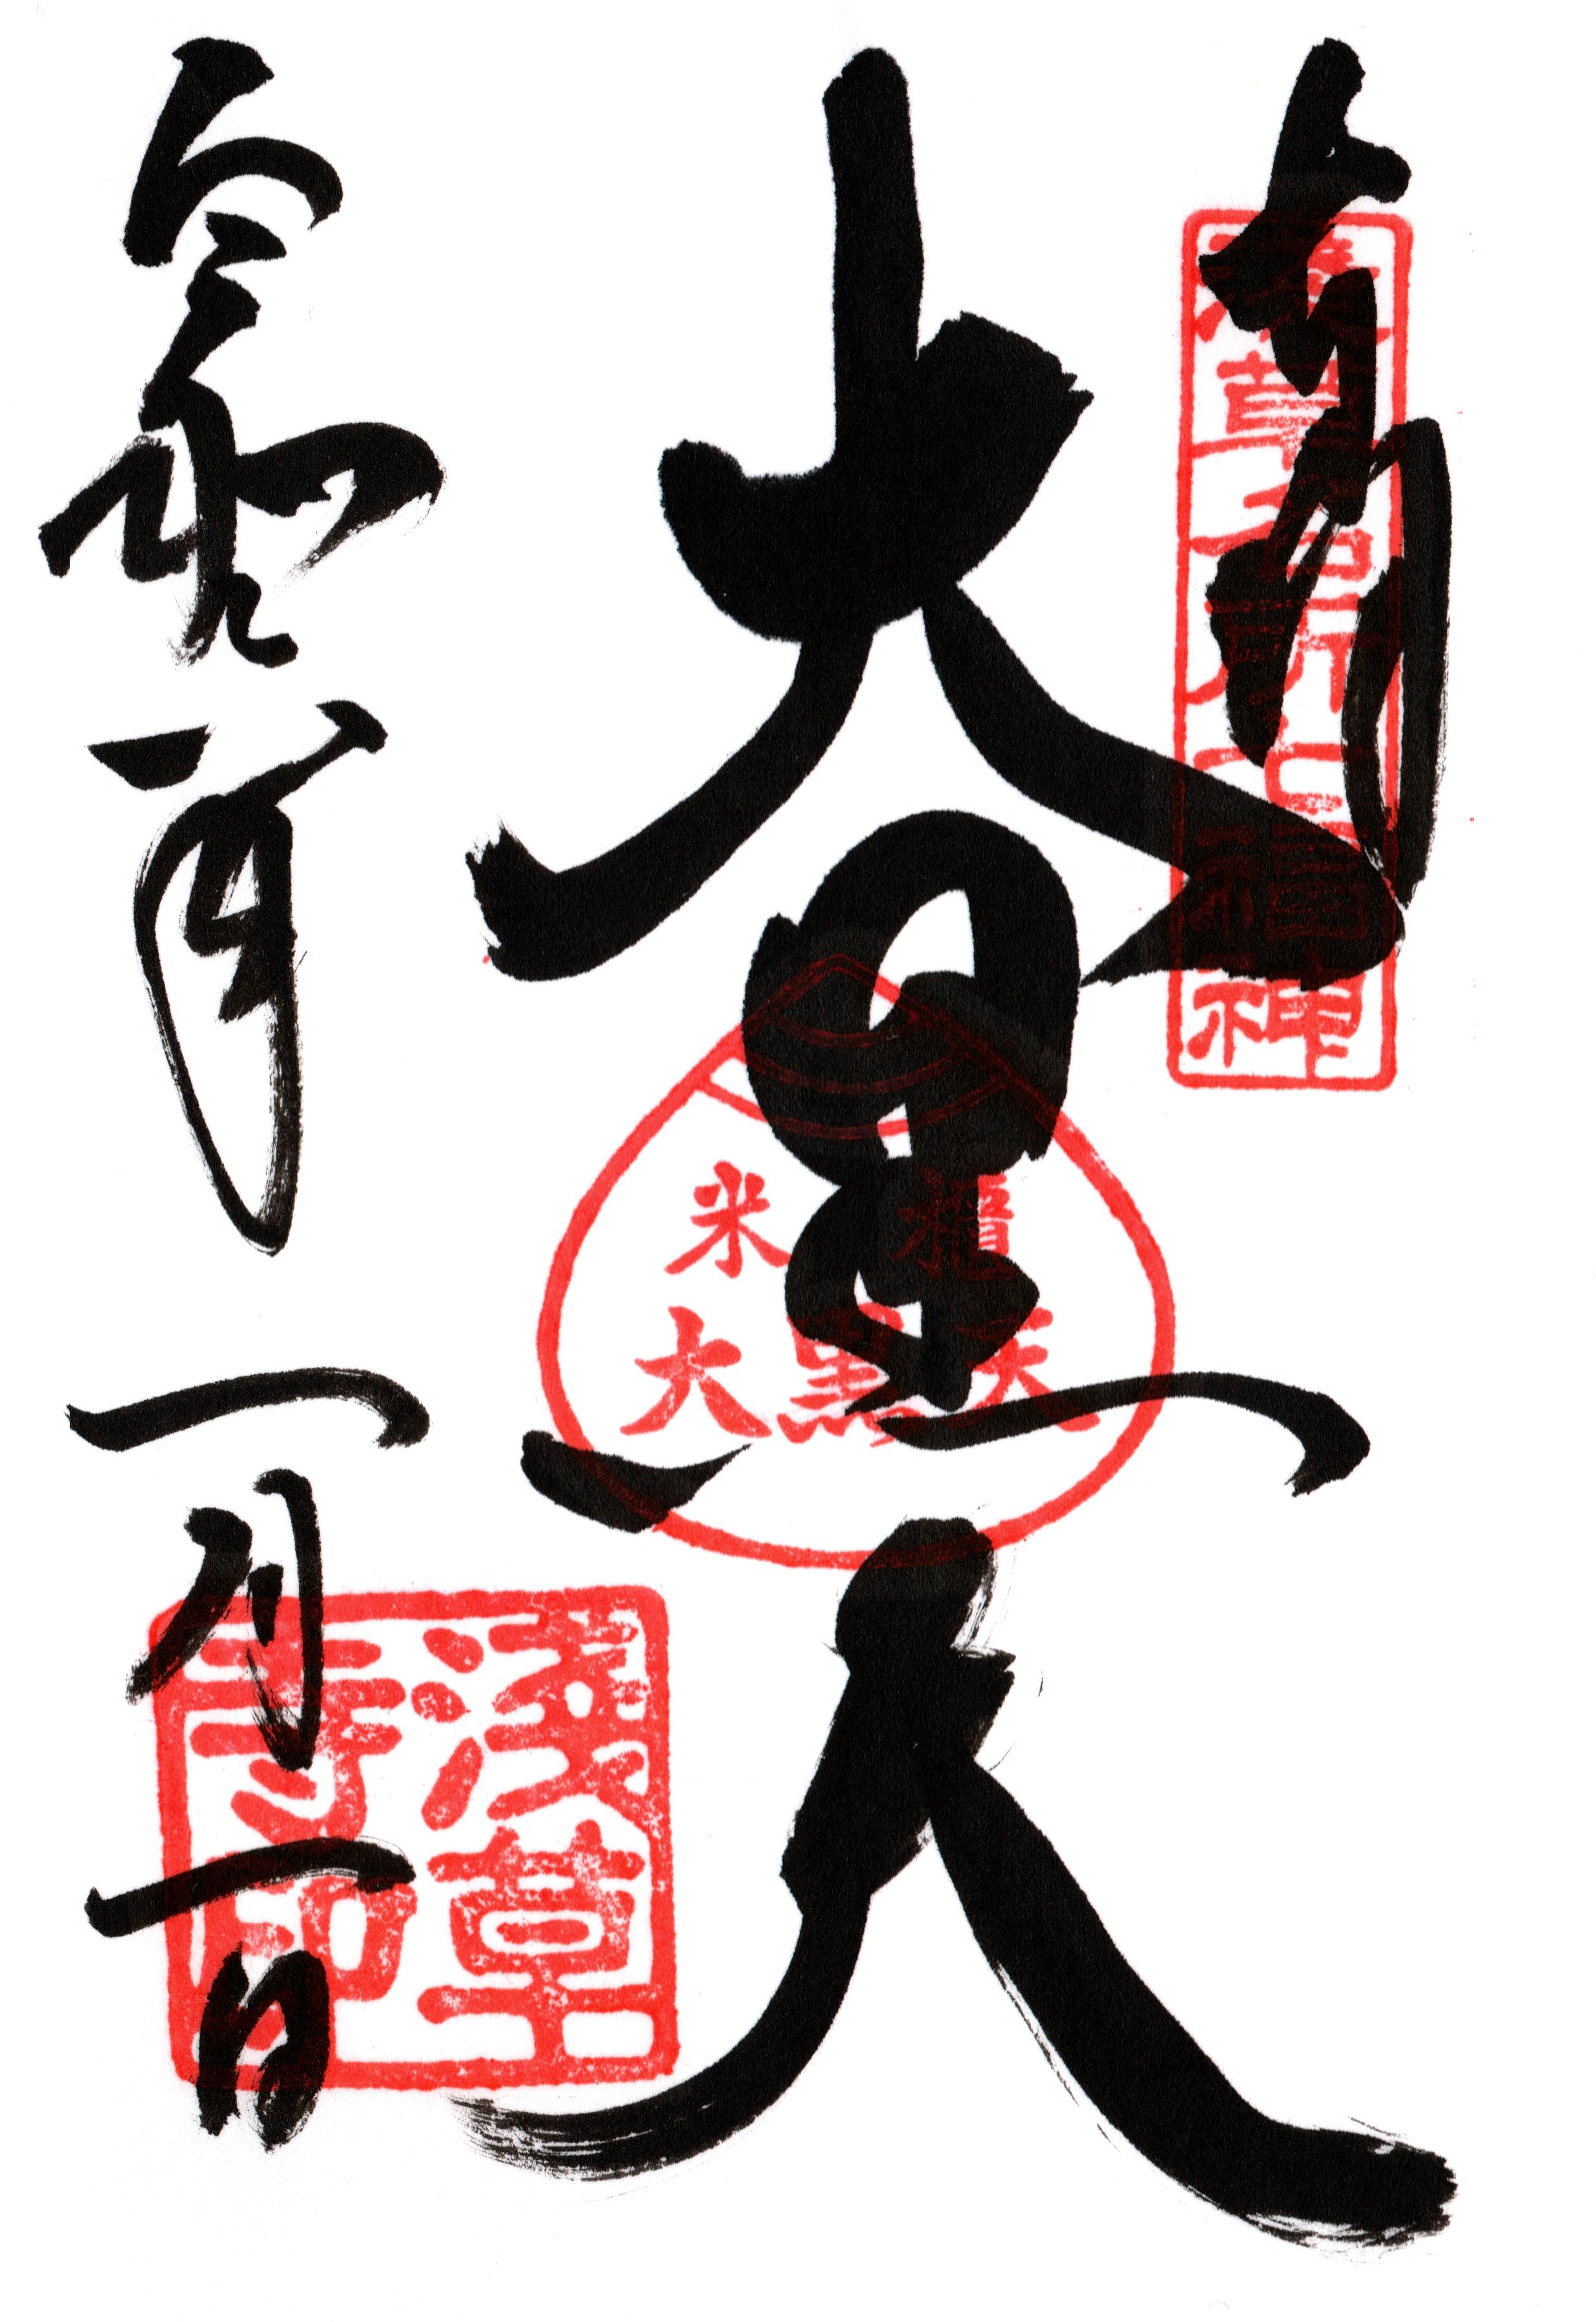 奉拝
淺草名所七福神
大黒天
米櫃
大黒天
令和 年
一月一日
淺草
寺印